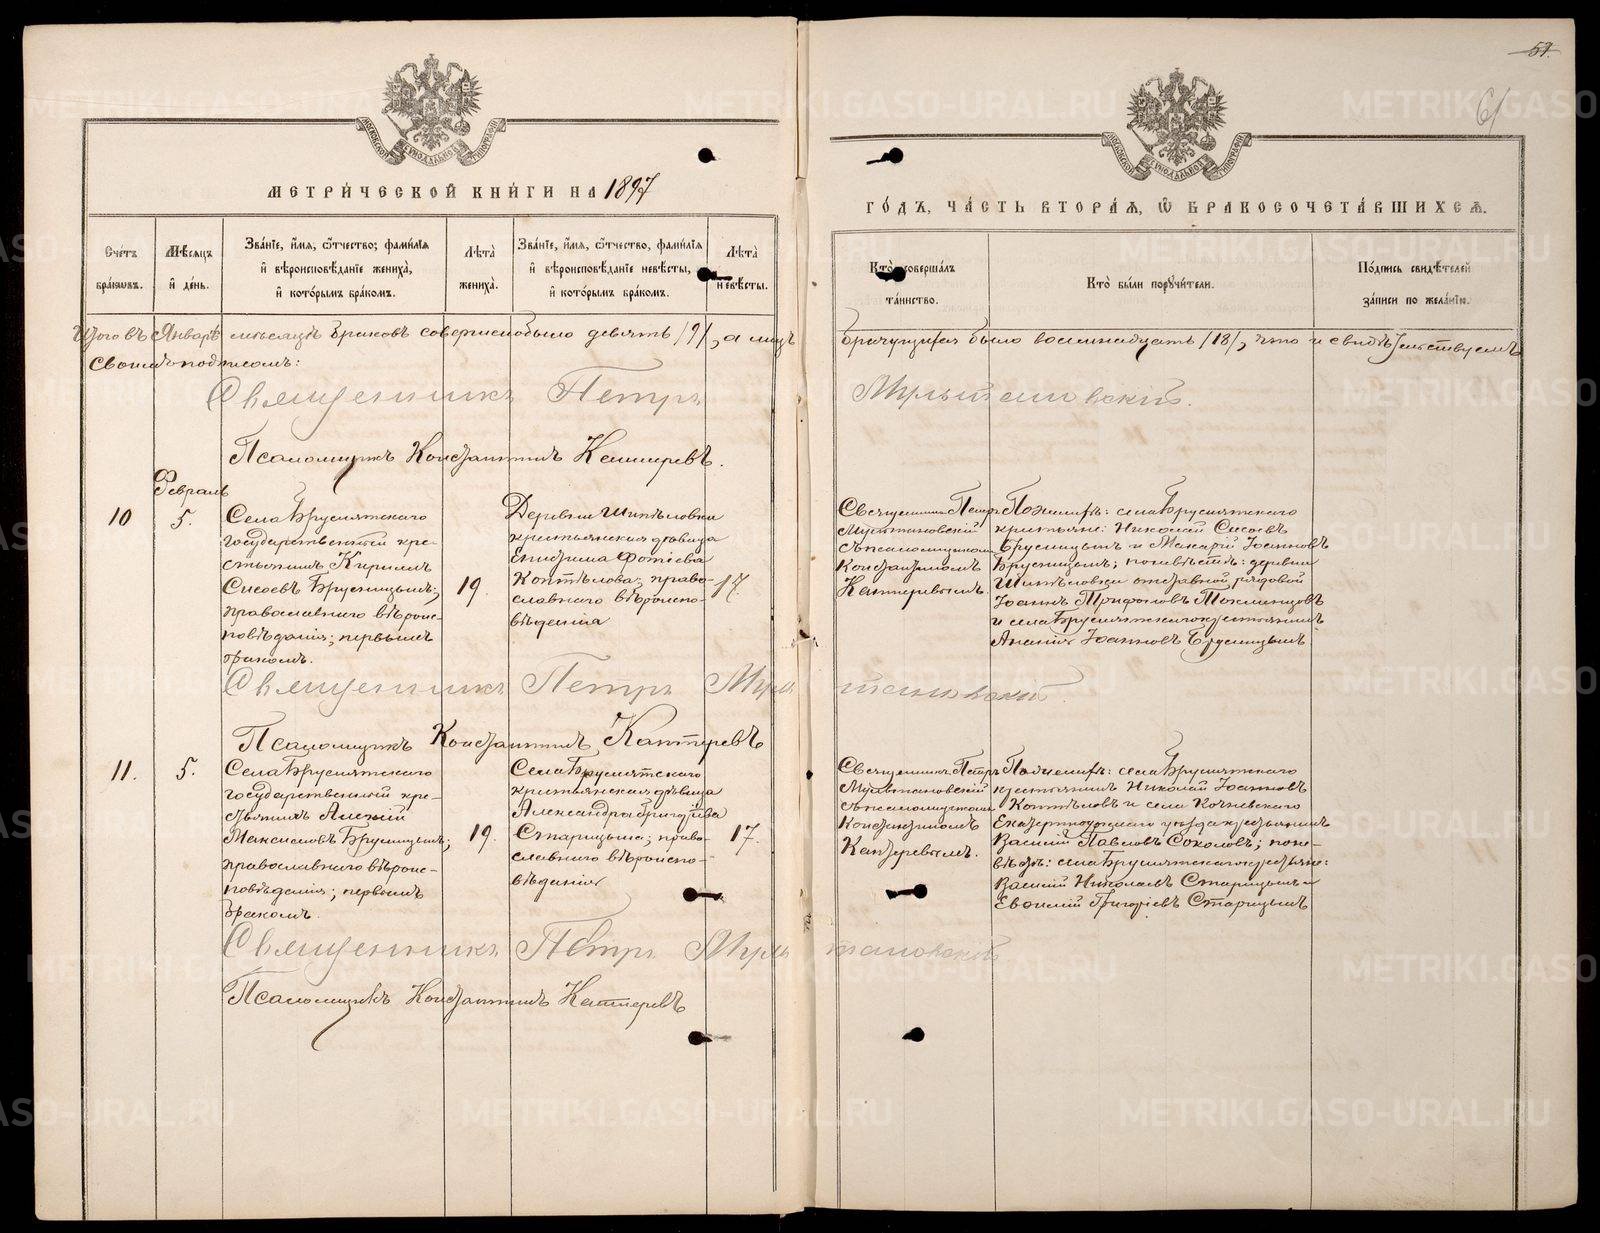 59.
61
МОСКОВСКОЙ СѴНОДАЛЬНОЙ ТИПОГРАФІИ
МОСКОВСКОЙ СѴНОДАЛЬНОЙ ТИПОГРАФІИ
МЕТРИ́ЧЕСКОЙ КНИ́ГИ НА 1897
ГО́ДЪ, ЧА́СТЬ ВТОРА́Я, Ѡ БРАКОСОЧЕТА́ВШИХСЯ.
Сче́тъ бра́кѡвъ.
Мѣ́сяцъ и де́нь.
Зва́нїе, и́мя, ѻ́тчество, фами́лїя
и вѣроисповѣ́данїе жениха̀,
и кото́рымъ бра́комъ.
Лѣ́та
жениха̀.
Зва́нїе, и́мя, ѻ́тчество, фами́лїя
и вѣроисповѣ́данїе невѣ́сты,
и кото́рымъ бра́комъ.
Лѣ́та
невѣ́сты.
Кто̀ соверша́лъ
та́инство.
Кто̀ бы́ли поручи́тели.
По́дпись свидѣ́телей
за́писи по жела́нїю.
Итого въ Январѣ мѣсяцѣ браковъ совершено было девять /9/, а лицъ
брачущихся было восемнадцать /18/, что и свидѣтельствуемъ
своимъ подписомъ:
Священникъ Петръ Мультановскій.
Псаломщикъ Константинъ Кантеревъ.
Февраль
10
5.
Села Брусянтскаго
государственный кре-
стьянинъ Кириллъ
Сысоевъ Брусницынъ;
православнаго вѣроис-
повѣданія; первымъ
бракомъ.
19.
Деревни Шипѣловки
крестьянская дѣвица
Епистима Фотіева
Коптѣлова; право-
славнаго вѣроиспо-
вѣданія
17.
Священникъ Петръ
Мультановскій
съ псаломщикомъ
Константиномъ
Кантеревымъ.
По женихѣ: села Брусянтскаго
крестьяне: Николай Сысоевъ
Брусницынъ и Макарій Іоанновъ
Брусницынъ; по невѣстѣ: деревни
Шипѣловки отставной рядовой
Іоаннъ Трифоновъ
и села Брусянтскаго крестьянинъ
Ананія Іоанновъ Брусницынъ
Священникъ Петръ Мультановскій.
Псаломщикъ Константинъ Кантеревъ
11.
5.
Села Брусянтскаго
государственный кре-
стьянинъ Алексій
Максимовъ Брусницынъ;
православнаго вѣроис-
повѣданія; первымъ
бракомъ.
19.
Села Брусянтскаго
крестьянская дѣвица
Александра Григоріева
Старицына; право-
славнаго вѣроиспо-
вѣданія
17.
Священникъ Петръ
Мультановскій
съ псаломщикомъ
Константиномъ
Кантеревымъ.
По женихѣ: села Брусянтскаго
крестьянинъ Николай Іоанновъ
Коптѣловъ и села Кочневскаго
Екатеринбургскаго уѣзда крестьянинъ
Василій Павловъ Соколовъ; по не-
вѣстѣ: села Брусянтскаго крестьяне:
Василій Николаевъ Старицынъ и
Евѳимій Григоріевъ Старицынъ
Священникъ Петръ Мультановскій
Псаломщикъ Константинъ Кантеревъ
METRIKI.GASO-URAL.RU